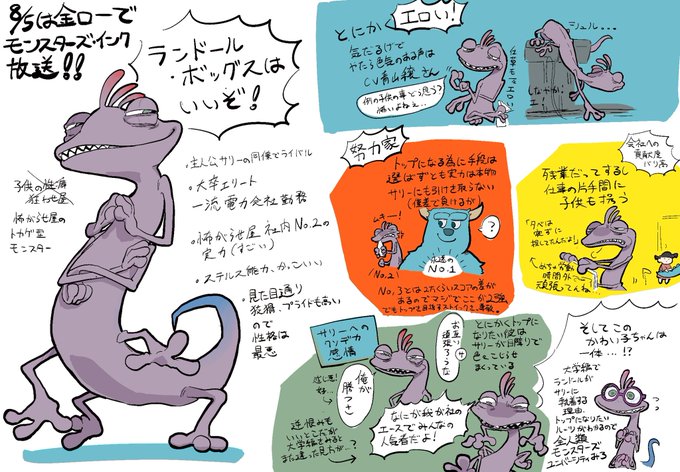 8/5は金ローで
モンスターズ・インク
放送!!
ランドール
・ボッグスは
いいぞ!
子供の性癖
狂わせ屋
怖がらせ屋の
トカゲ型
モンスター
・主人公サリーの同僚でライバル
・大卒エリート
一流電力会社勤務
・怖がらせ屋社内No.2の
実力(すごい)
・ステルス能力、かっこいい
・見た目通り
狡猾、プライドも高い
ので
性格は
最悪
とにかく
エロい!
気だるげで
やたら色気のある声は
CV青山穣さん
例の子供の事どう思う?
怖いよねぇ…
仕草もエロい
シュル…
しなやか!
エ!
努力家
トップになる為に手段は
選ばずとも実力は本物
サリーにも引けを取らない
(僅差で負けるが)
ムキー!
No.2
?
永遠の
No.1
No.3とはスコアの差が
あるのでマジでここが2強
でもトップを目指すストイックさ、素敵。
会社への
貢献度
バリ高
残業だってするし
仕事の片手間に
子供も捕う
「夕べは
寝ずに
探してたんだよ」
時間が
頑張ってんね
サリーへの
クソデカ
感情
お互い
頑張ろうな
サ
俺が
勝つさ
とにかくトップに
なりたい彼は
サリーが目障りで
色々こじらせ
まくっている
なにが我が社の
エースでみんなの
人気者だよ!
逆恨みも
いいとこだが
大学編をみると
また違った見方が…?
そしてこの
かわい子ちゃんは
一体…!?
大学編で
ランドールが
サリーに
執着する
理由、
トップになりたい
ルーツがわかるので
全人類
モンスターズ
ユニバーシティみろ